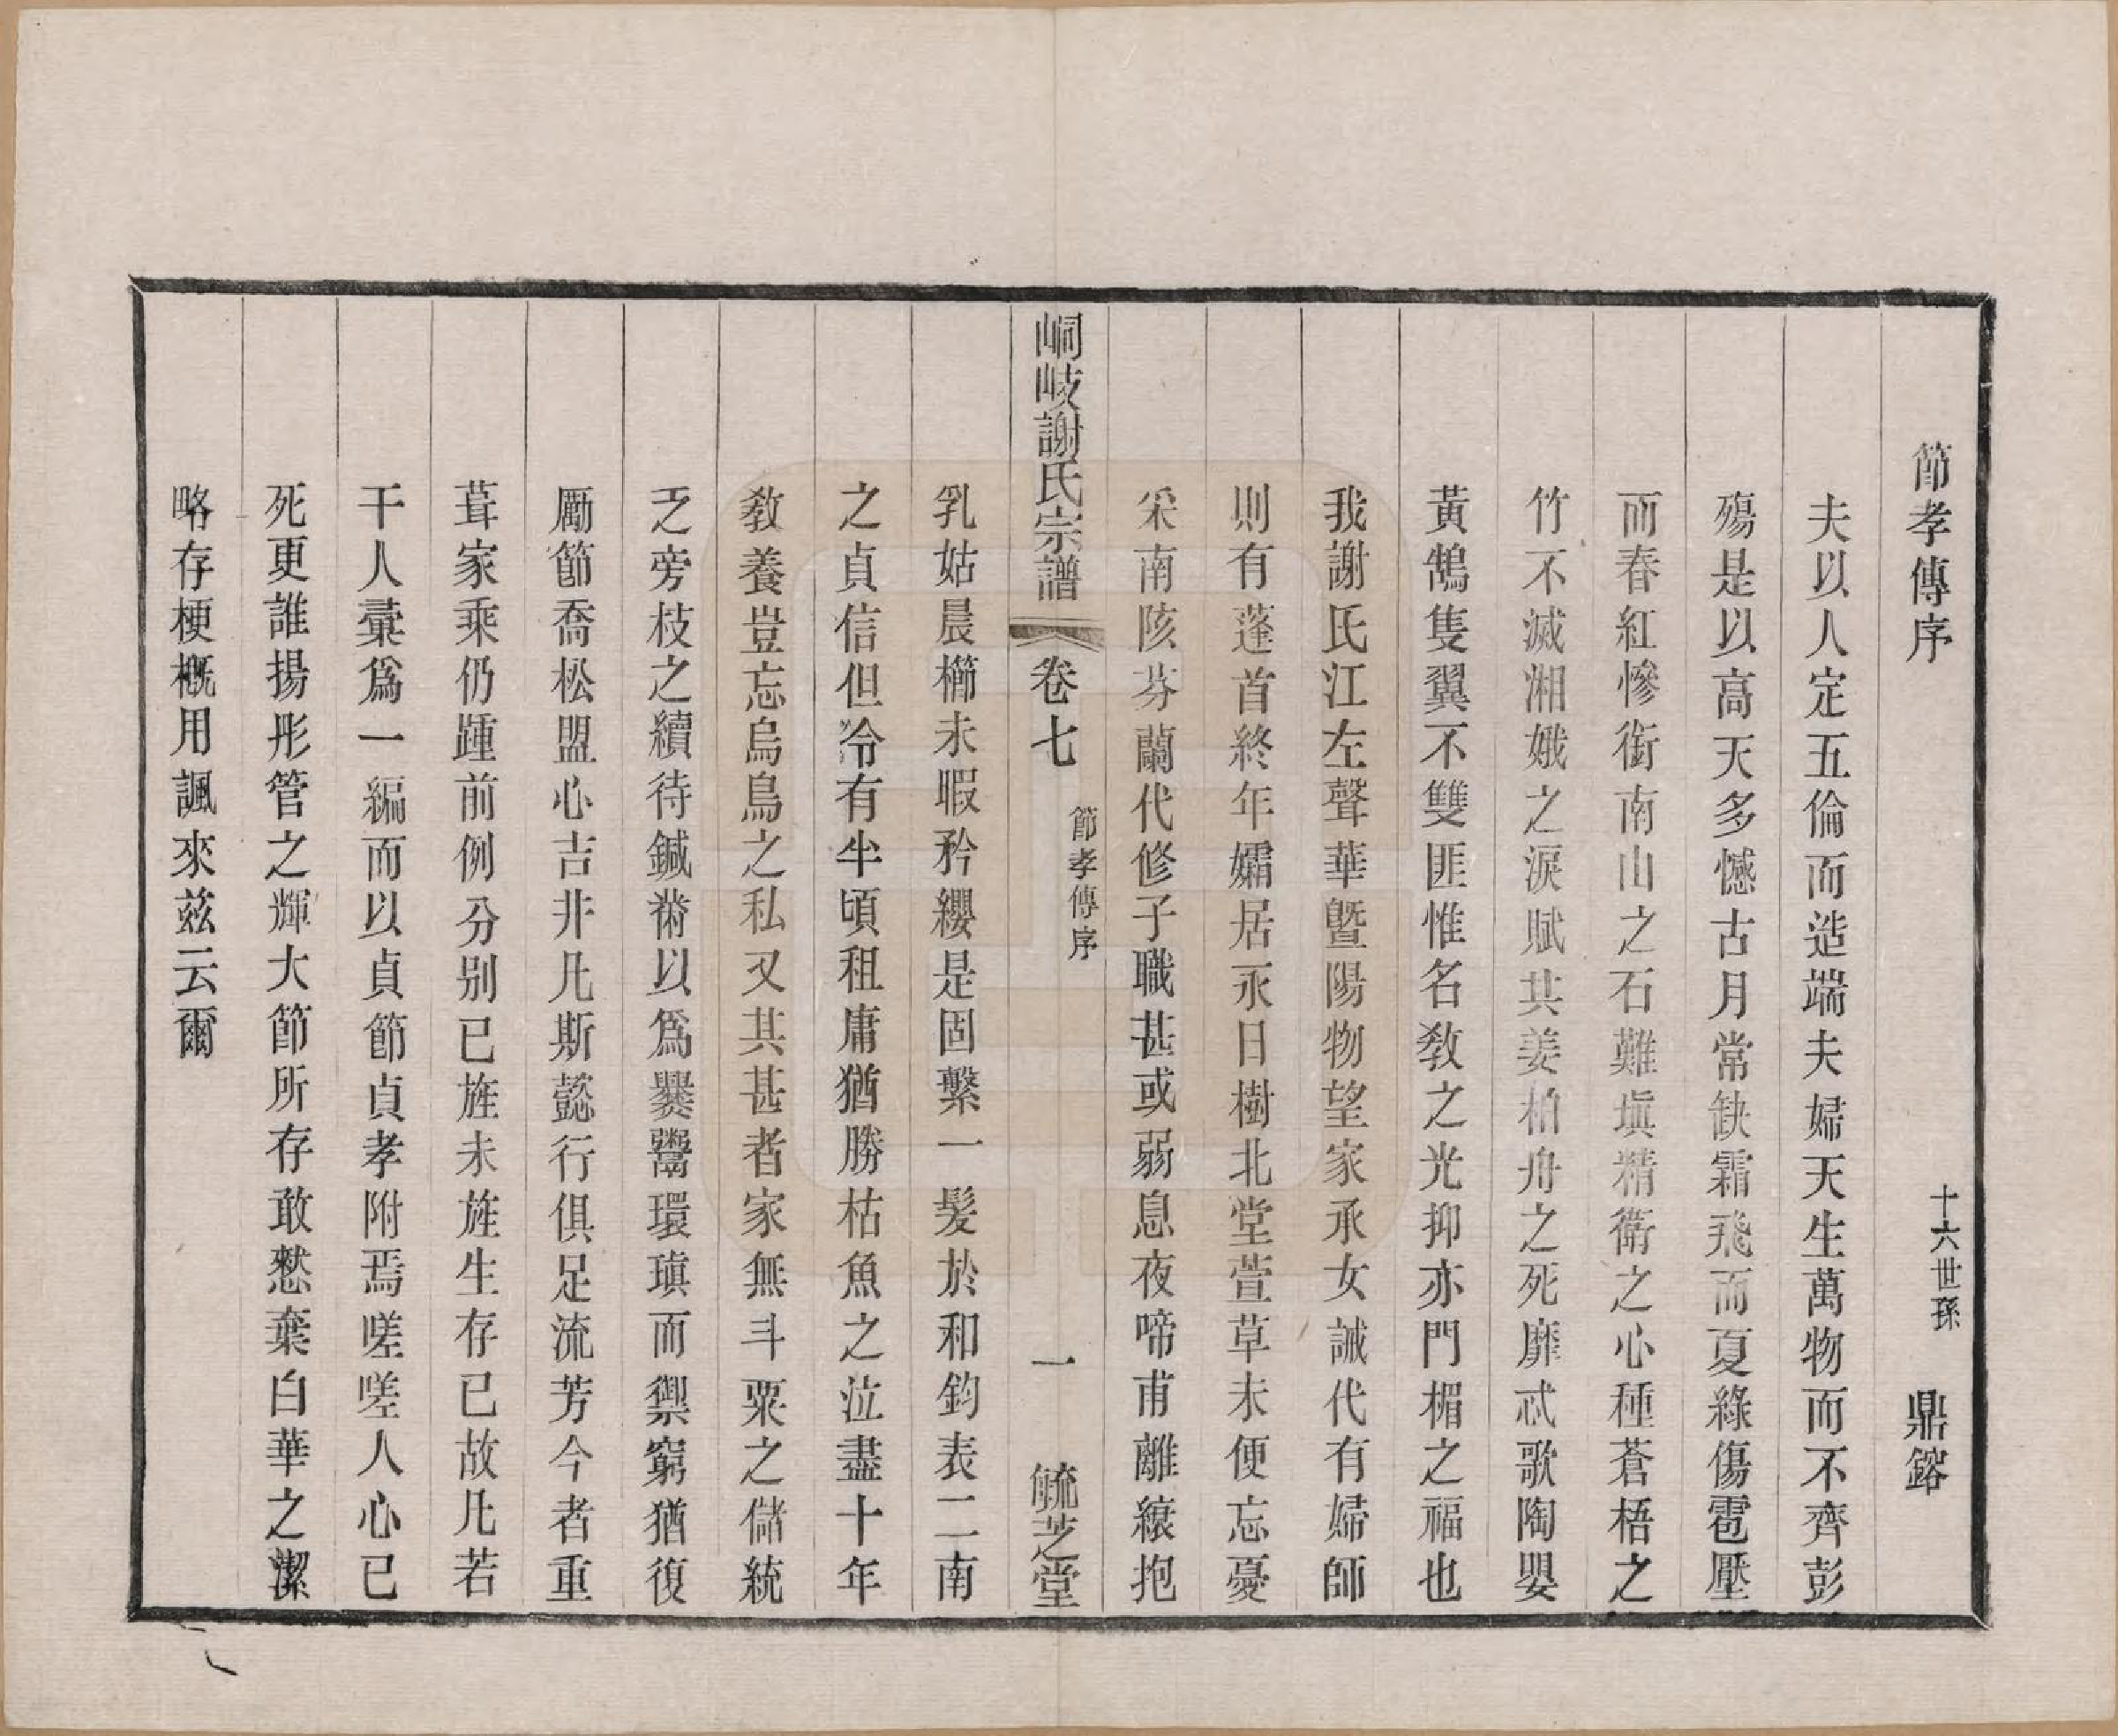 節孝傳序 十六世孫 鼎鎔
夫以人定五倫而造端夫婦天生萬物而不齊彭
殤是以高天多憾古月常缺霜飛而夏綠傷雹壓
而春紅慘銜南山之石難塡精衛之心種蒼梧之
竹不滅湘娥之淚賦共姜柏舟之死靡忒歌陶嬰
黃鵠隻翼不雙匪惟名敎之光抑亦門楣之福也
我謝氏江左聲華暨陽物望家承女誡代有婦師
則有蓬首終年孀居永日樹北堂萱草未便忘憂
采南陔芬蘭代修子職甚或弱息夜啼甫離繈抱
峒岐謝氏宗譜 卷七 節孝傳序 一 毓芝堂
乳姑晨櫛未暇矜纓是固繫一髮於和鈞表二南
之貞信但冷有半頃租庸猶勝枯魚之泣盡十年
敎養豈忘烏鳥之私又其甚者家無斗粟之儲統
乏旁枝之續待鍼黹以爲爨鬻環瑱而禦窮猶復
厲節喬松盟心吉井凡斯懿行俱足流芳今者重
葺家乘仍踵前例分別已旌未旌生存已故凡若
干人彙爲一編而以貞節貞孝附焉嗟嗟人心已
死更誰揚彤管之輝大節所存敢憖棄白華之潔
略存梗概用諷來茲云爾